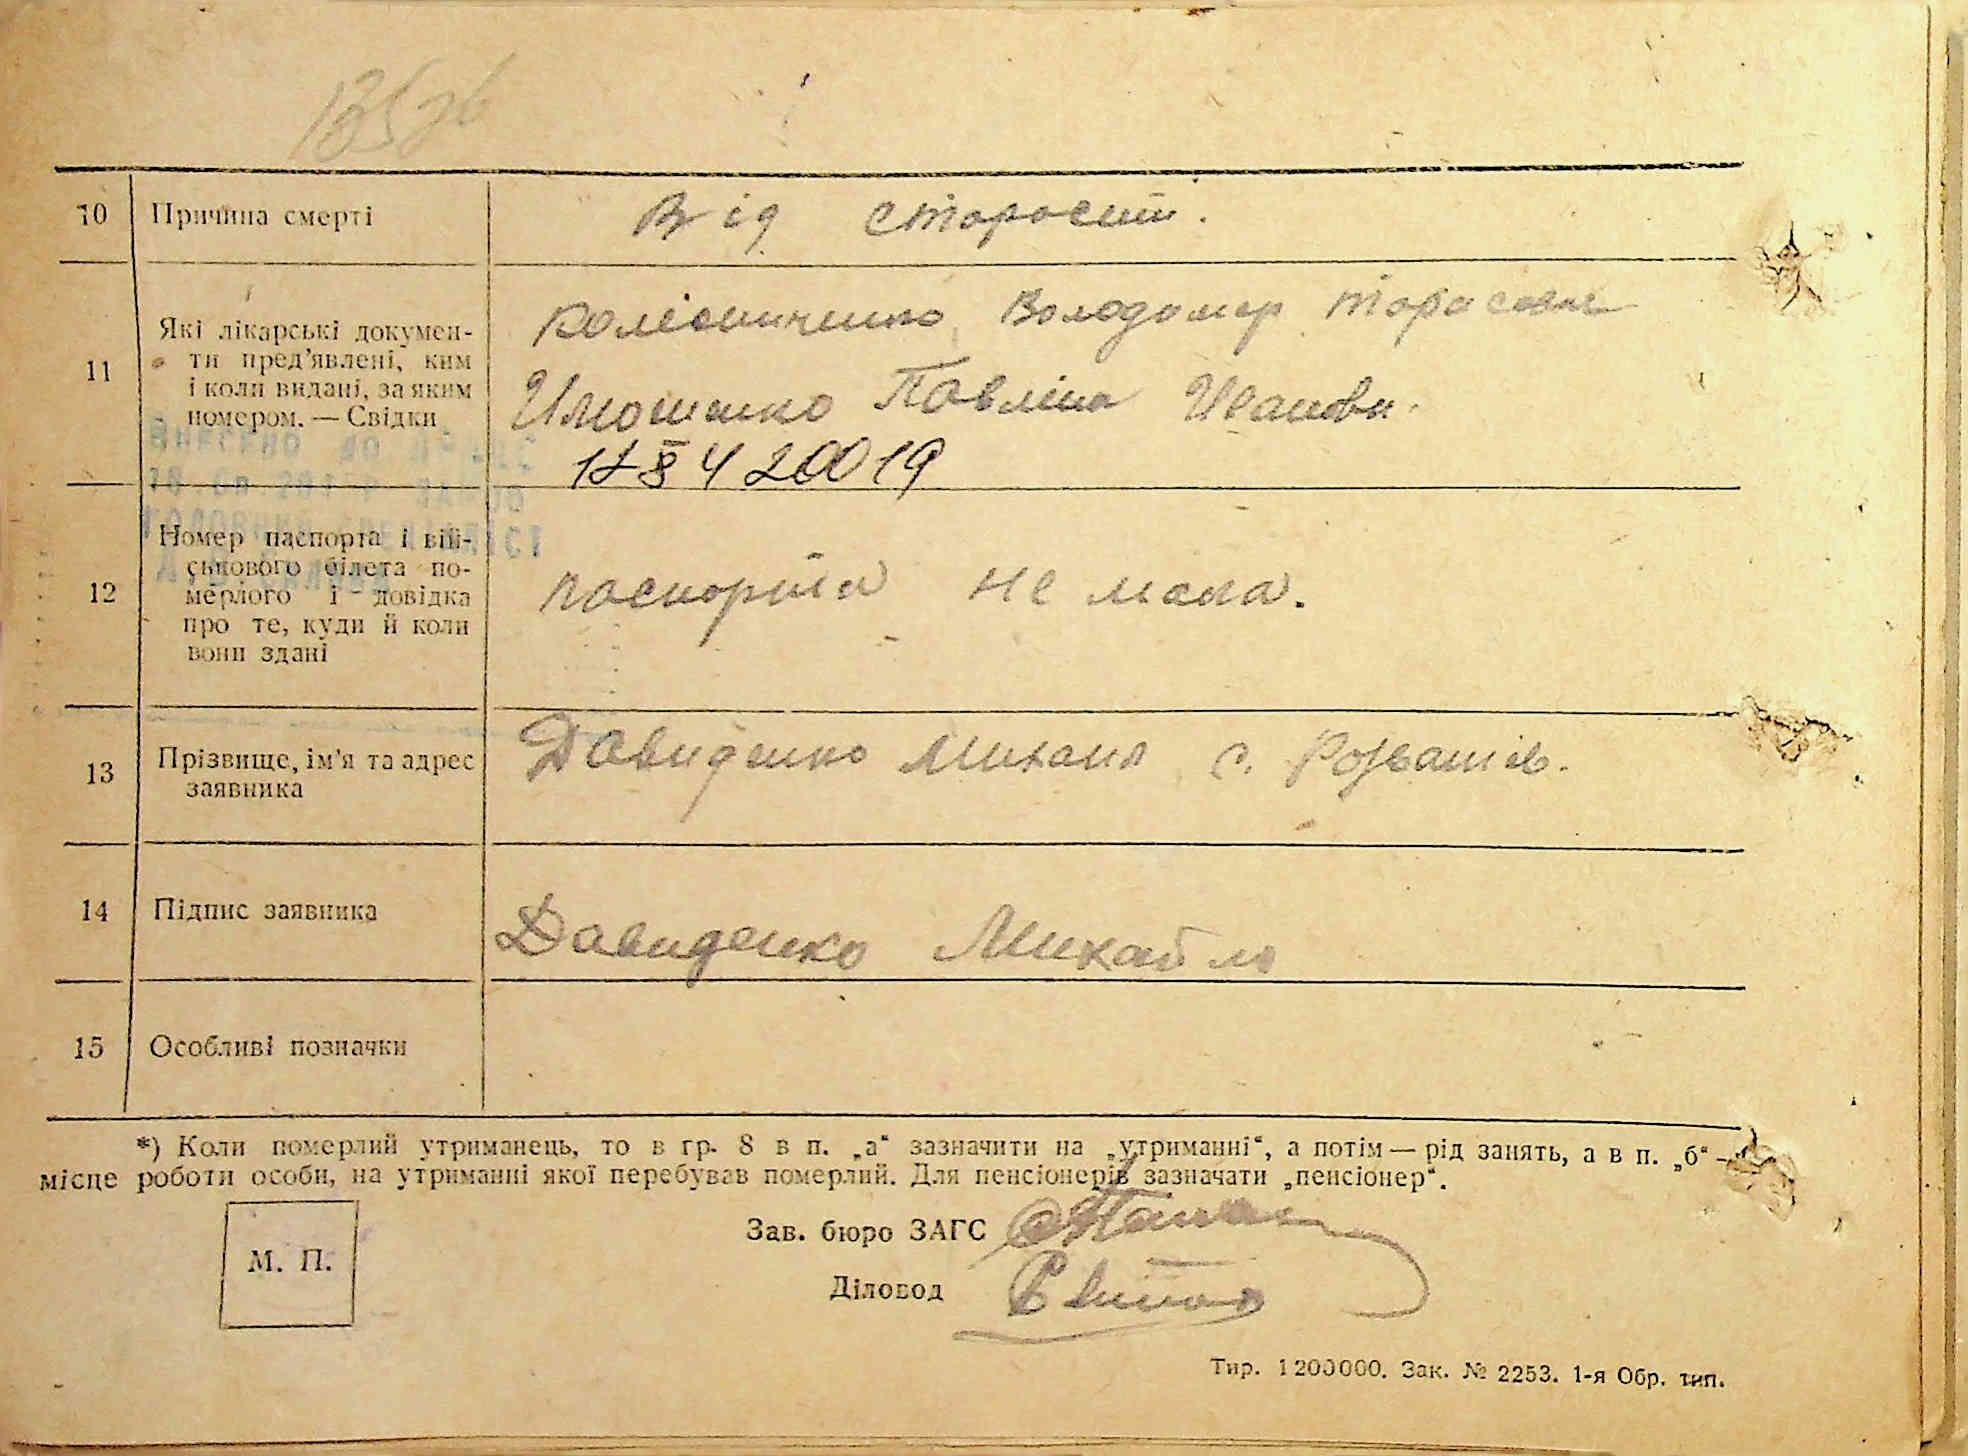 10 Причина смерті Від старости.
11 Які лікарські докумен-
ти пред'явлені, ким
і коли видані, за яким
номером. — Свідки
Колісниченко Володомер Тарасович
Павліна Ивановн.
420019
12 Номер паспорта і вій-
ськового білета по-
мерлого і довідка
про те, куди й коли
вони здані
паспорта не мала.
13 Прізвище, ім'я та адрес
заявника
Давиденко Михаил с. Розважів.
14 Підпис заявника Давиденко Михайло
15 Особливі позначки
*) Коли померлий утриманець, то в гр. 8 в п. „а“ зазначити на „утриманні“, а потім — рід занять, а в п. „б“ —
місце роботи особи, на утриманні якої перебував померлий. Для пенсіонерів зазначати „пенсіонер“.
М. П.
Зав. бюро ЗАГС
Діловод
Тир. 1200000. Зак. № 2253. 1-я Обр. тип.